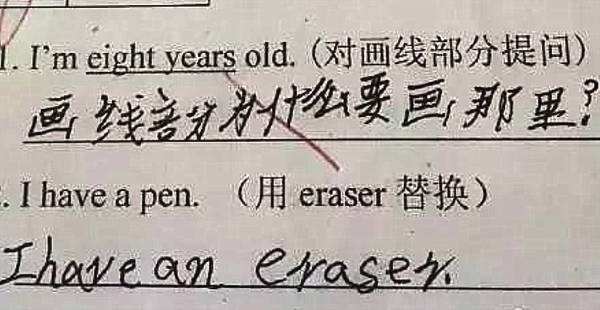 1. I'm eight years old. (对画线部分提问)
画线部分为什么要画那里?
. I have a pen. （用 eraser 替换）
I have an eraser.